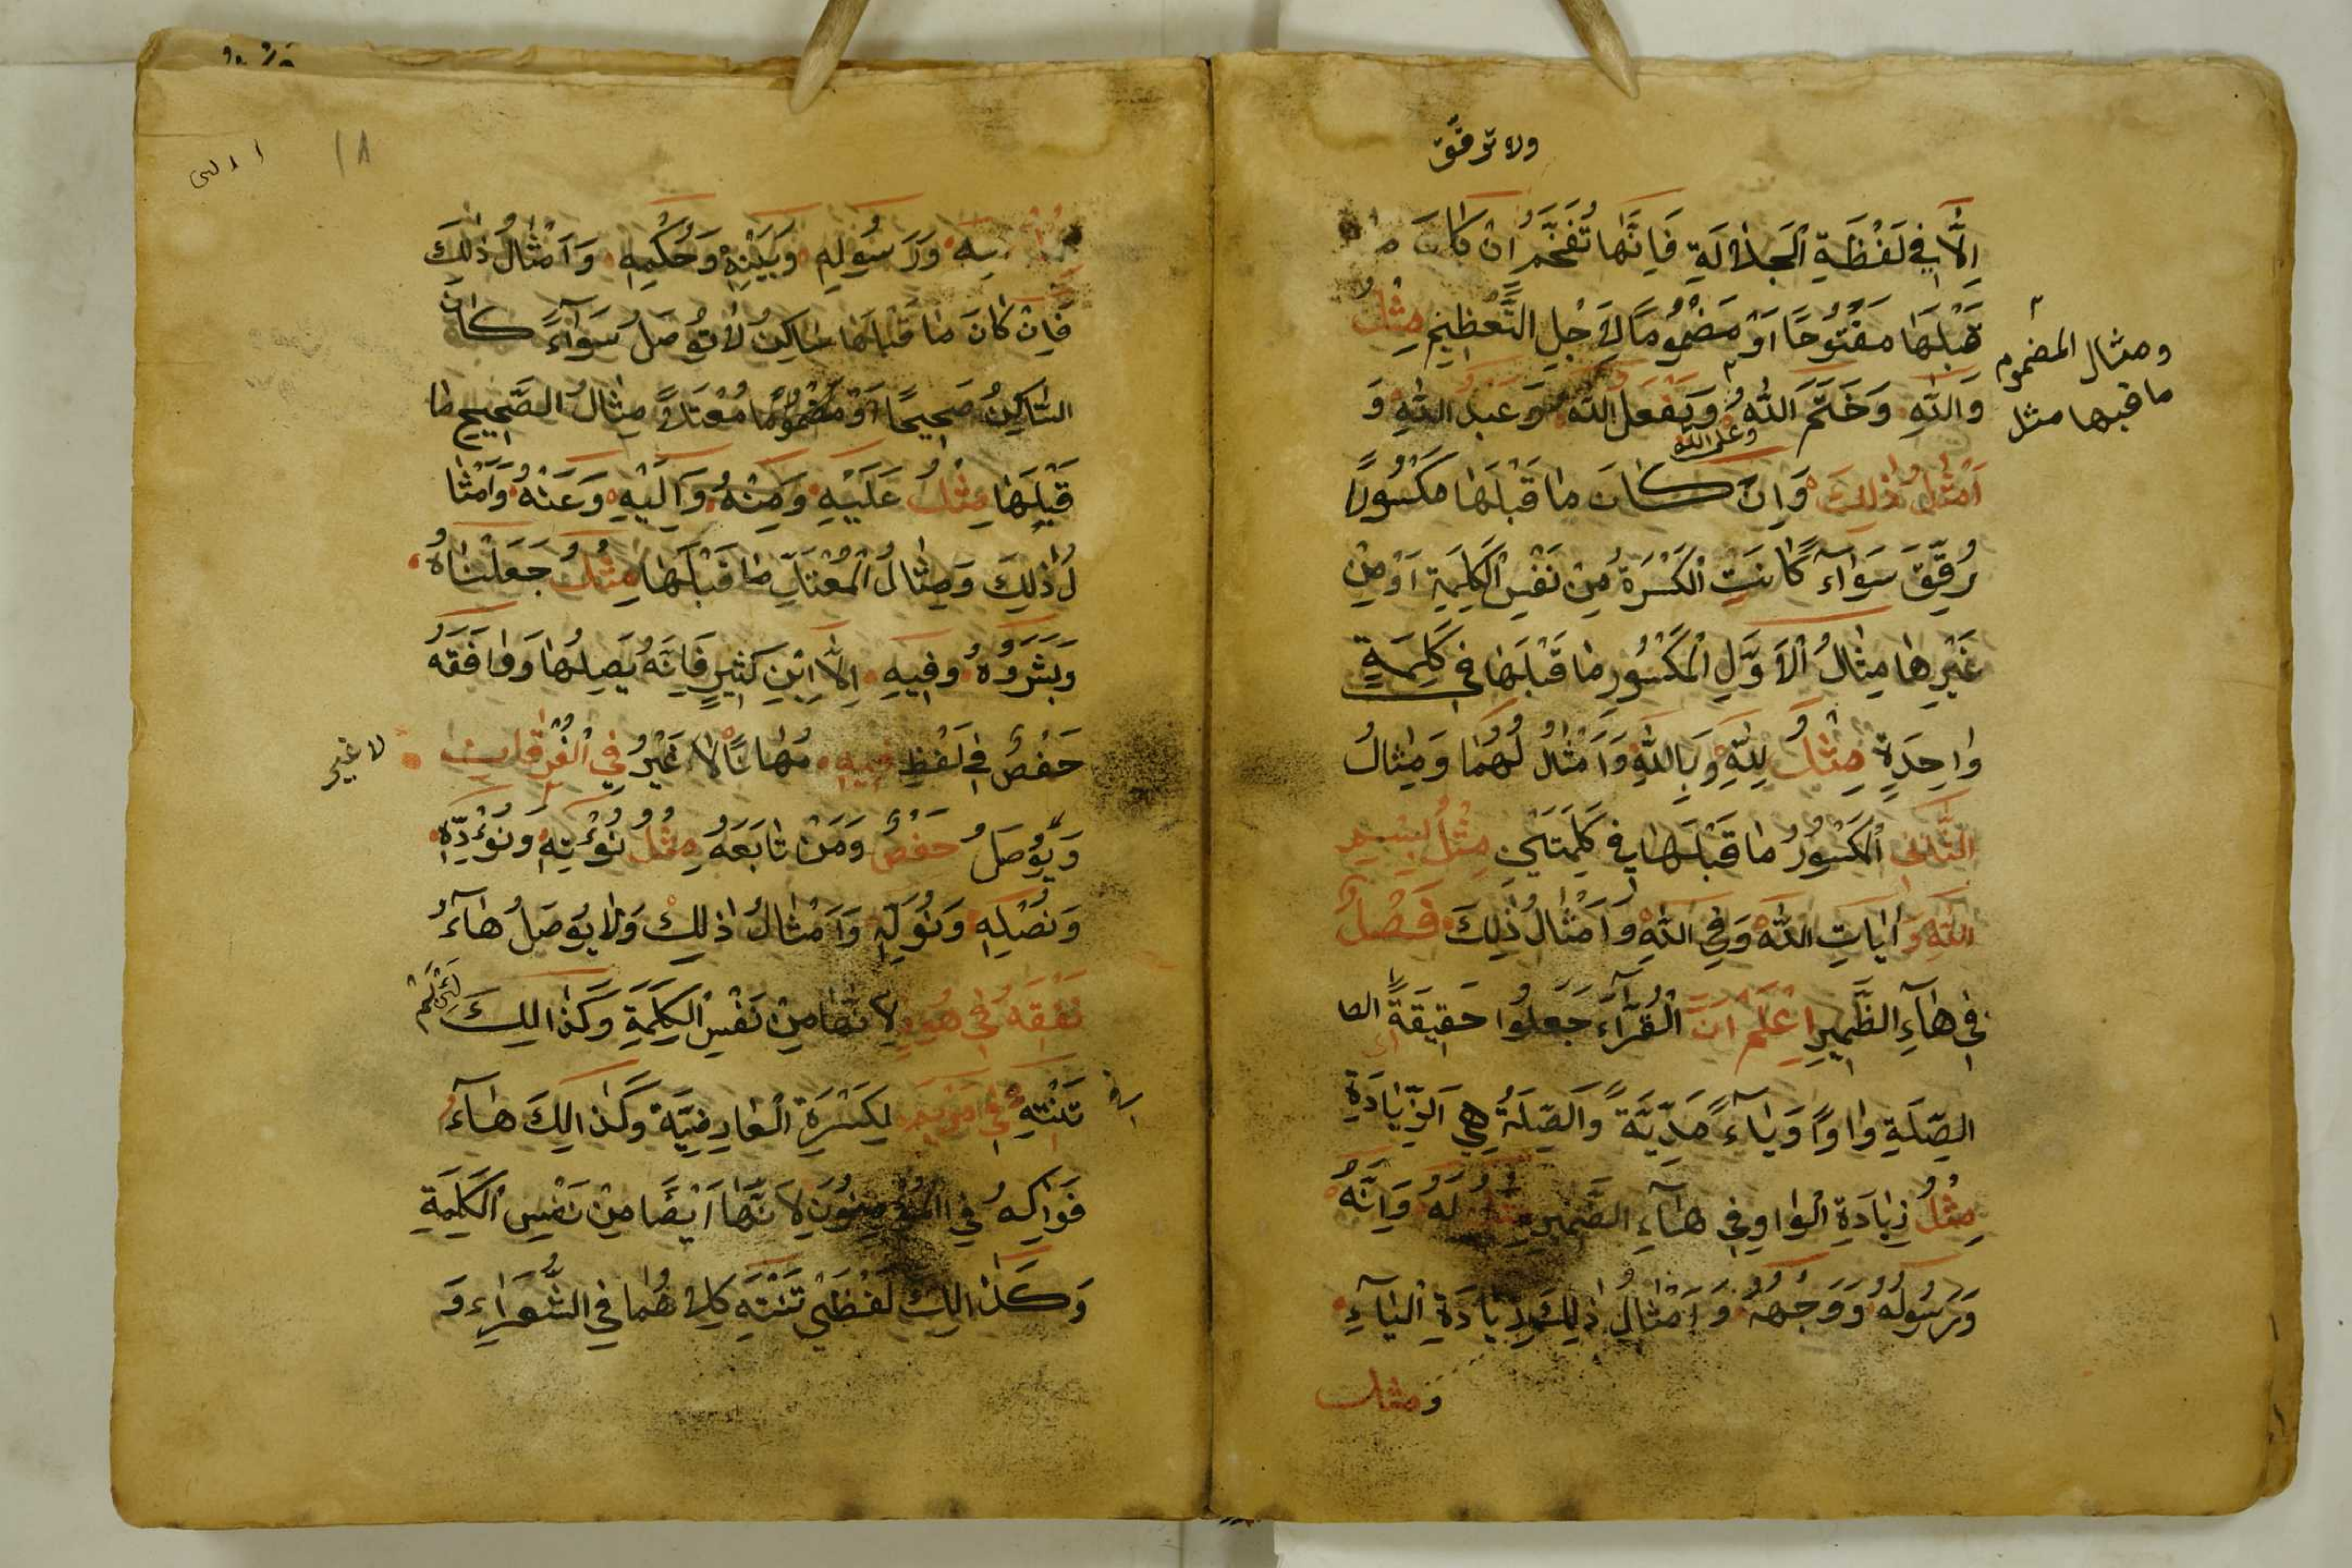 ولا ترقّق
اِلَّا فِي لَفْظَةِ الْجَلَالَةِ فَاِنَّهَا تُفَخَّمُ اِنْ كَانَ مَا
قَبْلَهَا مَفْتُوحًا اَوْ مَضْمُومًا لِاَجْلِ التَّعْظِيمِ مِثْلُ
ومثال المضموم
ما قبلها مثل
وَاللّٰهِ وَخَتَمَ اللّٰهُ وَيَفْعَلُ اللّٰهُ وَعَبْدُ اللّٰهِ وَ
وعلى الله
اَمْثَالُ ذٰلِكَ وَاِنْ كَانَ مَا قَبْلَهَا مَكْسُورًا
رُقِّقَ سَوَآءً كَانَتِ الْكَسْرَةُ مِنْ نَفْسِ الْكَلِمَةِ اَوْ مِنْ
غَيْرِهَا مِثَالُ الْاَوَّلِ الْمَكْسُورِ مَا قَبْلَهَا فِي كَلِمَةٍ
وَاحِدَةٍ مِثْلُ لِلّٰهِ وَبِاللّٰهِ وَاَمْثَالُ لَهُمَا وَمِثَالُ
الثَّانِي الْمَكْسُورُ مَا قَبْلَهَا فِي كَلِمَتَيْنِ مِثْلُ بِسْمِ
اللّٰهِ وَاٰيَاتِ اللّٰهِ وَفِي اللّٰهِ وَاَمْثَالُ ذٰلِكَ فَصْلٌ
فِي هَآءِ الظَّمِيرِ اِعْلَمْ اَنَّ الْقُرَّآءَ جَعَلُوا حَقِيقَةً
الصِّلَةِ وَاوًا وَيَآءً مَدِّيَّةً وَالصِّلَةُ هِيَ الزِّيَادَةِ
مِثْلُ زِيَادَةِ الْوَاوِ فِي هَآءِ الضَّمِيرِ مِثْلُ لَهُ وَاِنَّهُ
وَرَسُولُهُ وَوَجْهُهُ وَاَمْثَالُ ذٰلِكَ وَزِيَادَةِ الْيَآءِ
وَمثل
١٨
بِهِ وَرَسُولِهِ وَبَيْنِهِ وَحُكْمِهِ وَاَمْثَالُ ذٰلِكَ
فَاِنْ كَانَ مَا قَبْلَهَا سَاكِنٌ لَا تُوصَلُ سَوَآءً كَانَ
السَّاكِنُ صَحِيحًا اَوْ مُعْتَلًّا مِثَالُ الصَّحِيحِ مَا
قَبْلَهَا مِثْلُ عَلَيْهِ وَمِنْهُ وَاِلَيْهِ وَعَنْهُ وَاَمْثَا
لُ ذٰلِكَ وَمِثَالُ الْمُعْتَلِّ مَا قَبْلَهَا مِثْلُ جَعَلْنَاهُ
وَبَشَّرُوهُ وَفِيهِ اِلَّا اِبْنِ كَثِيرٍ فَاِنَّهُ يَصِلُهَا وَوَافَقَهُ
حَفْصٌ فِي لَفْظِ فِيهِ مُهَانًا لَا غَيْرُ فِي الْفُرْقَانِ
لا غير
وَيُوصَلُ حَفْصٌ وَمَنْ تَابَعَهُ مِثْلُ نُؤْتِهِ وَنُؤَدِّهِ
وَنُصْلِهِ وَنُوَلِّهِ وَاَمْثَالُ ذٰلِكَ وَلَا يُوصَلُ هَآءُ
نَفْقَهُ فِي هُودٍ لِاَنَّهَا مِنْ نَفْسِ الْكَلِمَةِ وَكَذَالِكَ لَئِنْ لَمْ
تَنْتَهِ فِي مَرْيَمَ لِكَسْرَةِ الْعَارِضِيَّةِ وَكَذَالِكَ هَآءُ
فَوَاكِهُ فِي الْمُؤْمِنُونَ لِاَنَّهَا اَيْضًا مِنْ نَفْسِ الْكَلِمَةِ
وَكَذَالِكَ لَفْظَيْ تَنْتَهِ كِلَاهُمَا فِي الشُّعَرَاءِ وَ